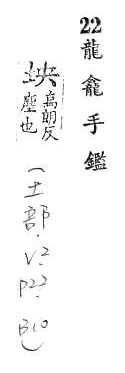 22龍龕手鑑
坱烏朗反塵也
(土部.V2.P22.B10)